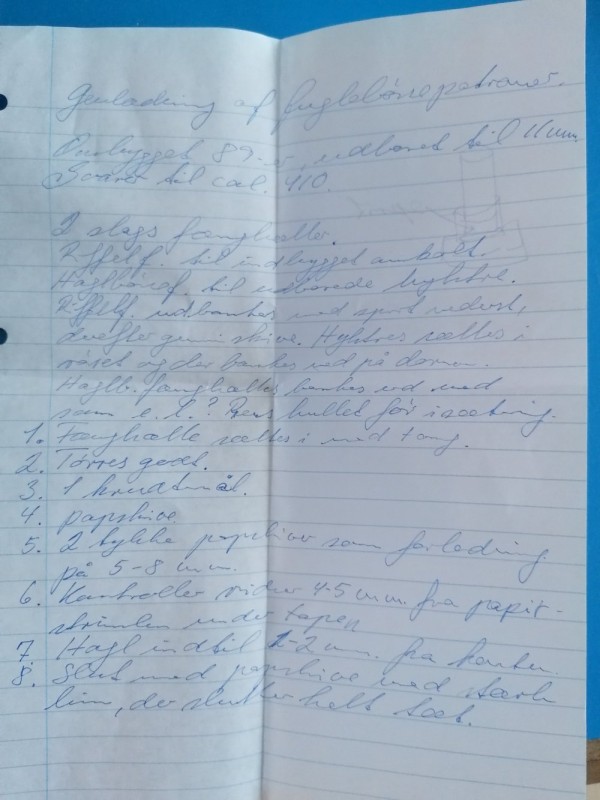 Genladning af fuglebössepatroner.
Ombygget 89-er, udboret til 11 mm.
Svarer til cal. 410.
2 slags fænghætter.
Riffelf. til indbygget ambolt.
Haglbössef. til udborede hylstre.
Riffelf. udbankes med spirt nederst,
derefter gummiskive. Hylstret sættes i
röret og der bankes ned på dornen.
Haglb. fænghætter bankes ud med
søm e. l.? Rens hullet för isætning.
1. Fænghætte sættes i med tang.
2. Törres godt.
3. 1 krudtmål.
4. papskive
5. 2 tykke papskiver som forladning
på 5-8 mm.
6. Kontroller 4-5 mm. fra papir-
strimlen under tapen
7. Hagl indtil 1-2 mm. fra kanten.
8. Slut med papskive med stærk
lim, der slutter helt tæt.